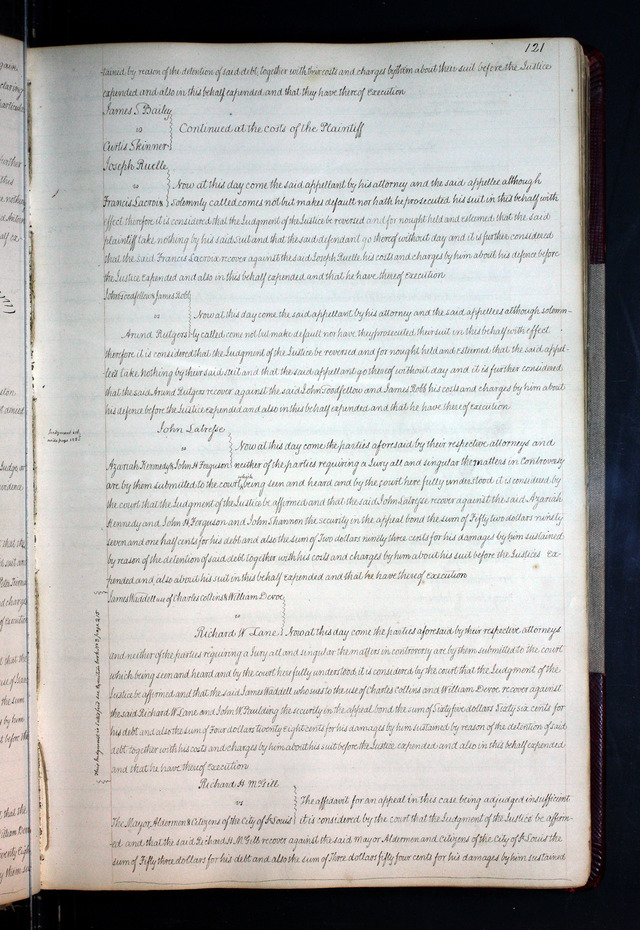 121
tained by reason of the detention of said debt, together with their costs and charges by them about their suit before the Justice
expended and also in this behalf expended and that they have there of execution
James S. Bailey
vs
Continued at the costs of the Plaintiff
Curtis Skinner
Joseph Ruelle
vs
Now at this day come the said appellant by his attorney and the said appellee although
Francis Lacroix solemnly called comes not but makes default nor hath he prosecuted his suit in this behalf with
effect therefore it is considered that the Judgment of the Justice be reversed and for nought held and esteemed that the said
plaintiff take nothing by his said suit and that the said defendant go thereof without day and it is further considered
that the said Francis Lacroix recover against the said Joseph Ruelle his costs and charges by him about his defence before
the Justice expended and also in this behalf expended and that he have there of execution
John Goodfellow & James Robb
vs
Now at this day come the said appellant by his attorney and the said appellees although solemn-
Arund Rutgers ly called come not but make default nor have they prosecuted their suit in this behalf with effect
therefore it is considered that the Judgment of the Justice be reversed and for nought held and esteemed that the said appel-
lees take nothing by their said suit and that the said appellant go thereof without day and it is further considered
that the said Arund Rutgers recover against the said John Goodfellow and James Robb his costs and charges by him about
his defence before the Justice expended and also in this behalf expended and that he have there of execution
John Latresse
Judgment set
aside page
vs
Now at this day come the parties aforesaid by their respective attorneys and
Azariah Kennedy & John H Ferguson neither of the parties requiring a Jury all and singular the matters in controversy
are by them submitted to the court which being seen and heard and by the court here fully understood it is considered by
the court that the Judgment of the Justice be affirmed and that the said John Latresse recover against the said Azariah
Kennedy and John H Ferguson and John Shannon the security in the appeal bond the sum of Fifty two dollars ninety
seven and one half cents for his debt and also the sum of Two dollars ninety three cents for his damages by him sustained
by reason of the detention of said debt together with his costs and charges by him about his suit before the Justices ex-
pended and also about his suit in this behalf expended and that he have there of execution
James Waddell use of Charles Collins & William Devoe
vs
Richard W. Lane Now at this day come the parties aforesaid by their respective attorneys
and neither of the parties requiring a Jury all and singular the matters in controversy are by them submitted to the court
which being seen and heard and by the court here fully understood, it is considered by the court that the Judgment of the
Justice be affirmed and that the said James Waddell who sues to the use of Charles Collins and William Devoe recover against
the said Richard W. Lane and John W Paulding the security in the appeal bond the sum of Sixty five dollars Sixty six cents for
his debt and also the sum of Four dollars twenty eight cents for his damages by him sustained by reason of the detention of said
debt together with his costs and charges by him about his suit before the Justice expended and also in this behalf expended
and that he have there of execution
This Judgment is satisfied
Richard H McGill
vs
The affidavit for an appeal in this case being adjudged insufficient
The Mayor, Aldermen & Citizens of the City of St Louis it is considered by the court that the Judgment of the Justice be affirm-
ed and that the said Richard H. McGill recover against the said Mayor Aldermen and citizens of the City of St Louis the
sum of Fifty three dollars for his debt and also the sum of Three dollars fifty four cents for his damages by him sustained